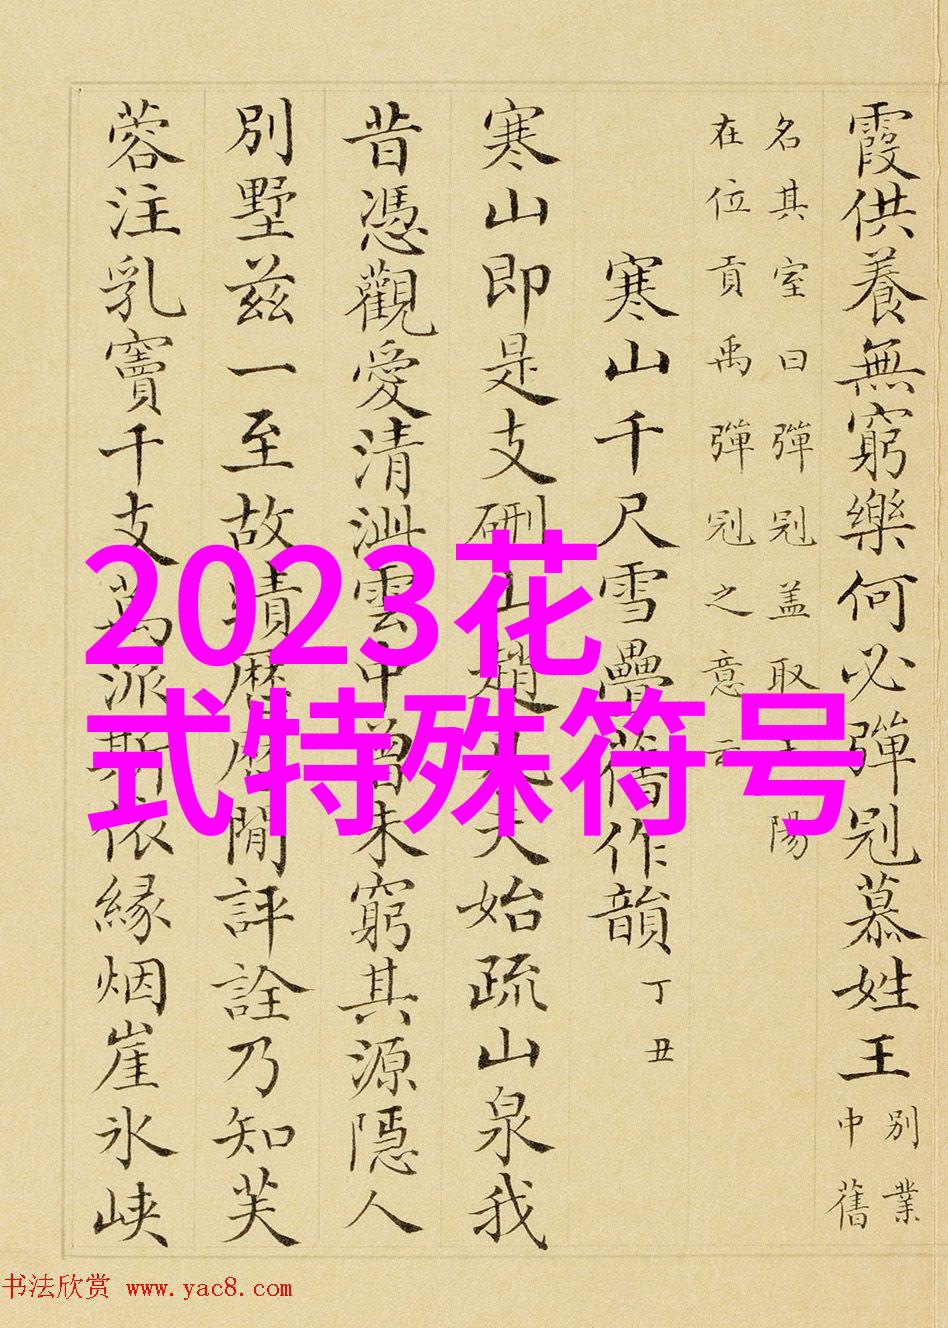 霞供養無窮樂何必彈冠慕姓王 別業
中舊
名其室曰彈冠盖取王陽
在位貢禹彈冠之意云
寒山千尺雪疊舊作韻 丁丑
寒山即是支硎山趙凡夫始疏山泉我
昔憑觀愛清泚雲中曾未窮其源隱人
別墅兹一至故蹟厯厯閒評詮乃知芙
蓉注乳竇千支萬派斯依緣烟崖氷峽
2023花
式特殊符号
书法欣赏 www.yac8.com